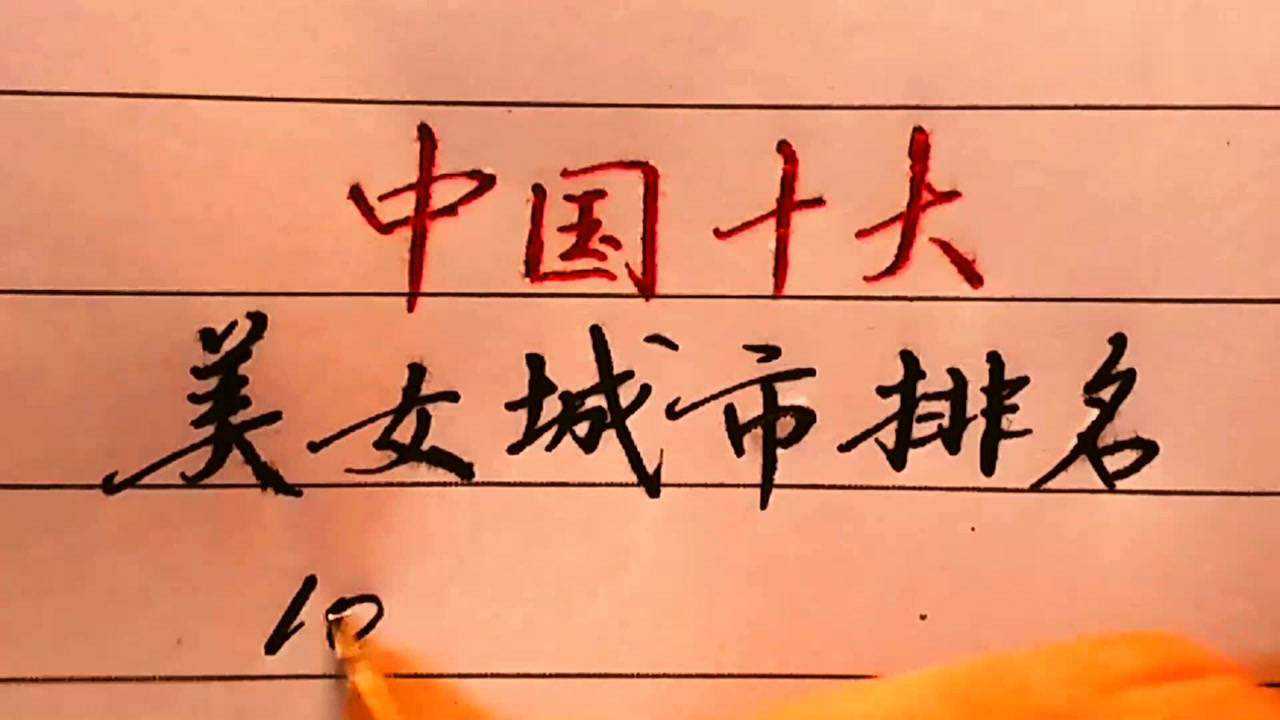 中国十大
美女城市排名
10